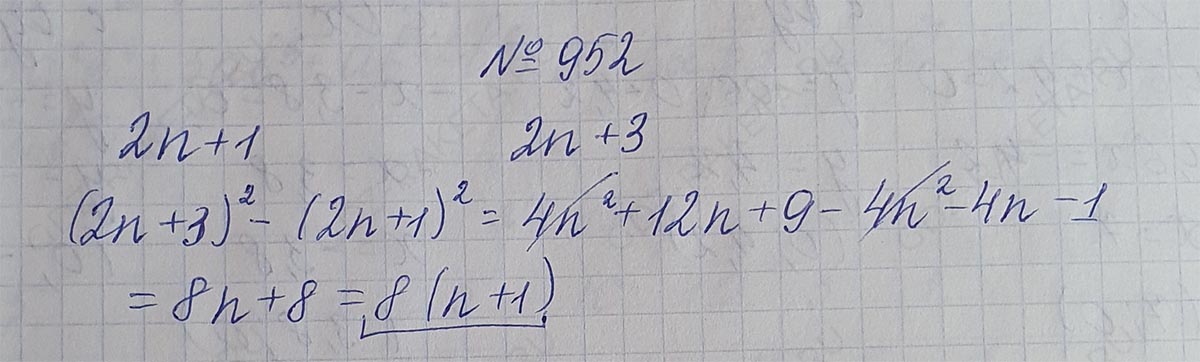 № 952
2n+1 2n+3
(2n+3)² - (2n+1)² = 4n² + 12n + 9 - 4n² - 4n - 1
= 8n + 8 = 8(n+1)